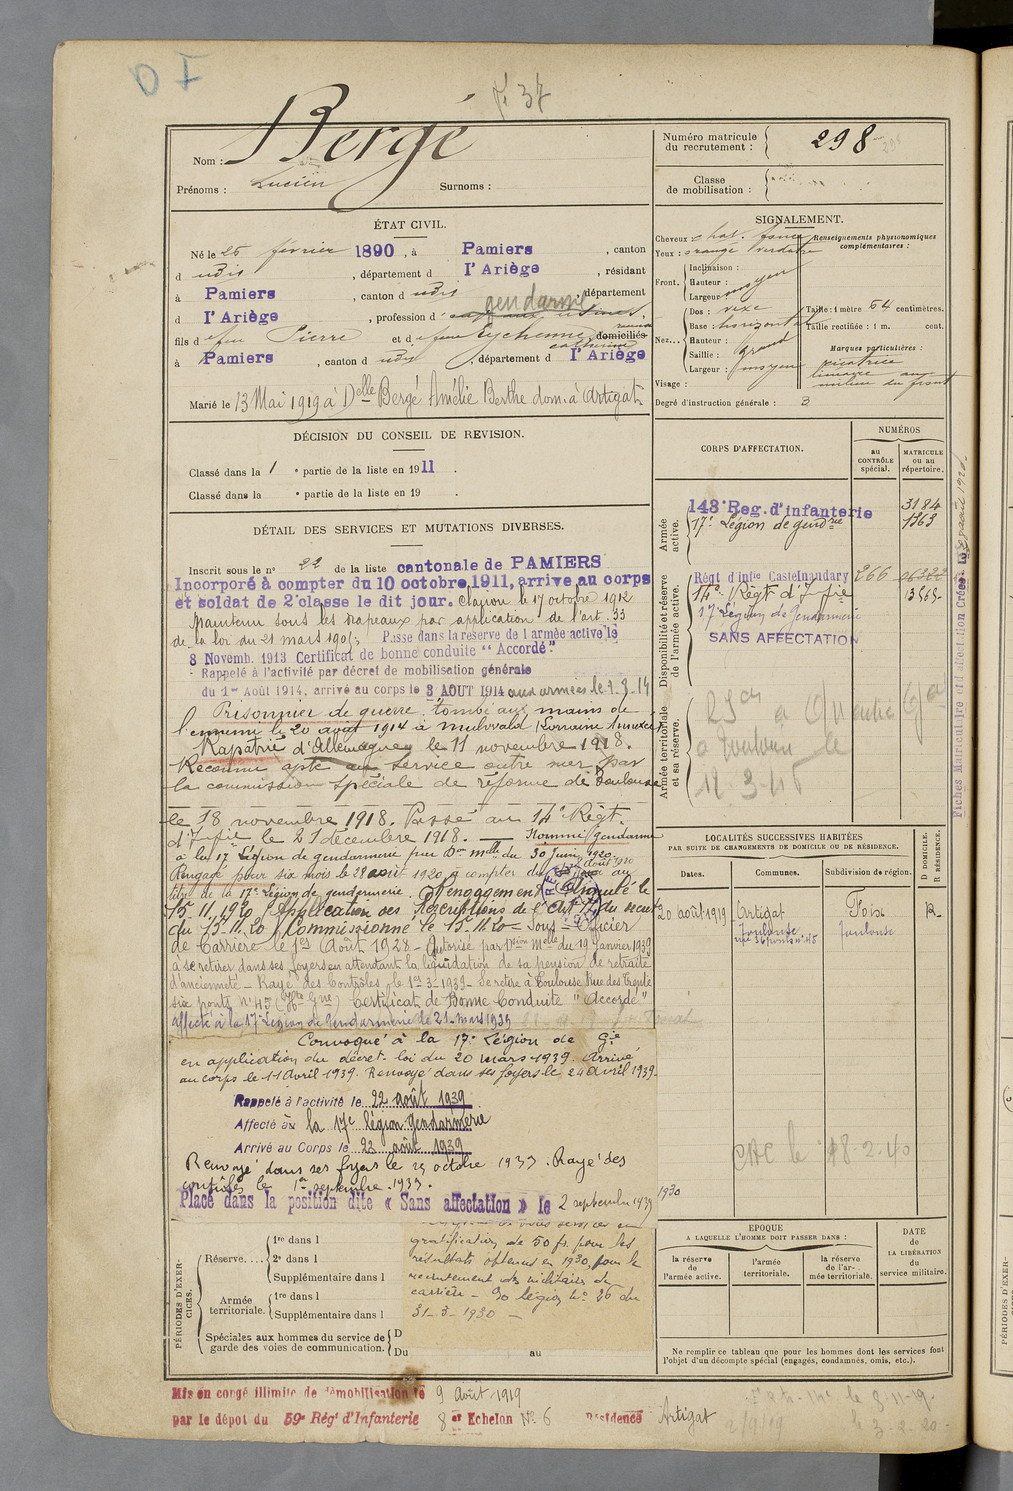 F° 37
Nom : Bergé
Prénoms : Lucien Surnoms :
Numéro matricule du recrutement : 298
Classe de mobilisation :
ÉTAT CIVIL.
Né le 25 février 1890, à Pamiers, canton
d udis, département d l'Ariège, résidant
à Pamiers, canton d udis, département
d l'Ariège, profession d gendarme
fils d feu Pierre et d feue Eychenne Catherine domiciliés
à Pamiers, canton d udis, département d l'Ariège
Marié le 13 Mai 1919 à Delle Bergé Amélie Berthe dom. à Artigat
SIGNALEMENT.
Cheveux chat. foncé
Yeux : orange verdâtre
Front. Inclinaison :
Hauteur :
Largeur moyen
Nez... Dos : vexe
Base : horizontal
Hauteur :
Saillie : grand
Largeur : moyen
Visage :
Renseignements physionomiques complémentaires :
Taille : 1 mètre 64 centimètres.
Taille rectifiée : 1 m. cent.
Marques particulières :
cicatrice
linéaire au
milieu du front
Degré d'instruction générale : 3
DÉCISION DU CONSEIL DE REVISION.
Classé dans la 1e partie de la liste en 1911.
Classé dans la e partie de la liste en 19 .
DÉTAIL DES SERVICES ET MUTATIONS DIVERSES.
Inscrit sous le n° 22 de la liste cantonale de PAMIERS
Incorporé à compter du 10 octobre 1911, arrive au corps
et soldat de 2e classe le dit jour. Clairon le 17 octobre 1912
Maintenu sous les drapeaux par application de l'art. 33
de la loi du 21 mars 1905; Passe dans la réserve de l'armée active le
8 Novemb. 1913 Certificat de bonne conduite "Accordé"
Rappelé à l'activité par décret de mobilisation générale
du 1er Août 1914, arrivé au corps le 3 AOUT 1914 aux armées le
Prisonnier de guerre tombé aux mains de
l'ennemi le 20 août 1914 à Lorraine Annexée
Rapatrié d'Allemagne le 11 novembre 1918.
Reconnu apte au service outre mer par
la commission spéciale de réforme de Toulouse
le 18 novembre 1918. Passé au 14e Régt.
d'Infie le 21 décembre 1918. — Nommé gendarme
à la 17e Légion de gendarmerie par Don Melle du 30 Juin 1920.
Rengagé pour six mois le 28 août 1920 à compter du au
titre de la 17e Légion de gendarmerie. Rengagement annulé le
15.11.1920 (Application des Prescriptions de l'Art 17 du décret
du 15.11.20) Commissionné le 15.11.20 = Sous-Officier
de Carrière le 1er Août 1928 - Autorisé par Dion Melle du 19 Janvier 1939
à se retirer dans ses foyers en attendant la liquidation de sa pension de retraite
d'ancienneté - Rayé des Contrôles le 1er 3-1939 - Se retire à Toulouse Rue des Trente
six ponts, n° 45 (Hte Gne) Certificat de Bonne Conduite "Accordé"
affecté à la 17e Légion de Gendarmerie le 21 mars 1939
Convoqué à la 17e Légion de Gie
en application du décret-loi du 20 mars 1939. Arrivé
au corps le 11 Avril 1939. Renvoyé dans ses foyers le 24 avril 1939.
Rappelé à l'activité le 22 août 1939
Affecté à la 17e légion gendarmerie
Arrivé au Corps le 23 août 1939
Renvoyé dans ses foyers le octobre 1939. Rayé des
contrôles le 1er septembre 1939.
Placé dans la position dite « Sans affectation » le 2 septembre 1939
CORPS D'AFFECTATION.
NUMÉROS
au CONTRÔLE spécial.
MATRICULE ou au répertoire.
Armée active.
143e Reg. d'infanterie 3184
17e Légion de gendrie 1363
Disponibilité et réserve de l'armée active.
Régt d'infie Castelnaudary 266
14e Régt d'Infie
17e Légion de Gendarmerie
SANS AFFECTATION
Armée territoriale et sa réserve.
à Toulouse le
12-3-46
Fiches Matriculaire et d'affectation Créées le août 192
LOCALITÉS SUCCESSIVES HABITÉES
PAR SUITE DE CHANGEMENTS DE DOMICILE OU DE RÉSIDENCE.
Dates. Communes. Subdivision de région. D DOMICILE. R RÉSIDENCE.
20 août 1919 Artigat Foix R.
Toulouse Toulouse
rue 36 ponts n° 45
le 18-2-40
EPOQUE
A LAQUELLE L'HOMME DOIT PASSER DANS :
la réserve de l'armée active.
l'armée territoriale.
la réserve de l'armée territoriale.
DATE de LA LIBÉRATION du service militaire.
Ne remplir ce tableau que pour les hommes dont les services font
l'objet d'un décompte spécial (engagés, condamnés, omis, etc.).
PÉRIODES D'EXERCICES.
Réserve.... 1re dans l
2e dans l
Supplémentaire dans l
Armée territoriale. 1re dans l
Supplémentaire dans l
Spéciales aux hommes du service de garde des voies de communication. D
Du au
gratification de 50 fs. pour les
résultats obtenus en 1930, pour le
recrutement des militaires de
carrière - légion n° 26 du
31-3-1930 -
Mis en congé illimité de démobilisation le 9 Août 1919
par le dépôt du 59e Régt d'Infanterie 8er Echelon N° 6 Résidence Artigat